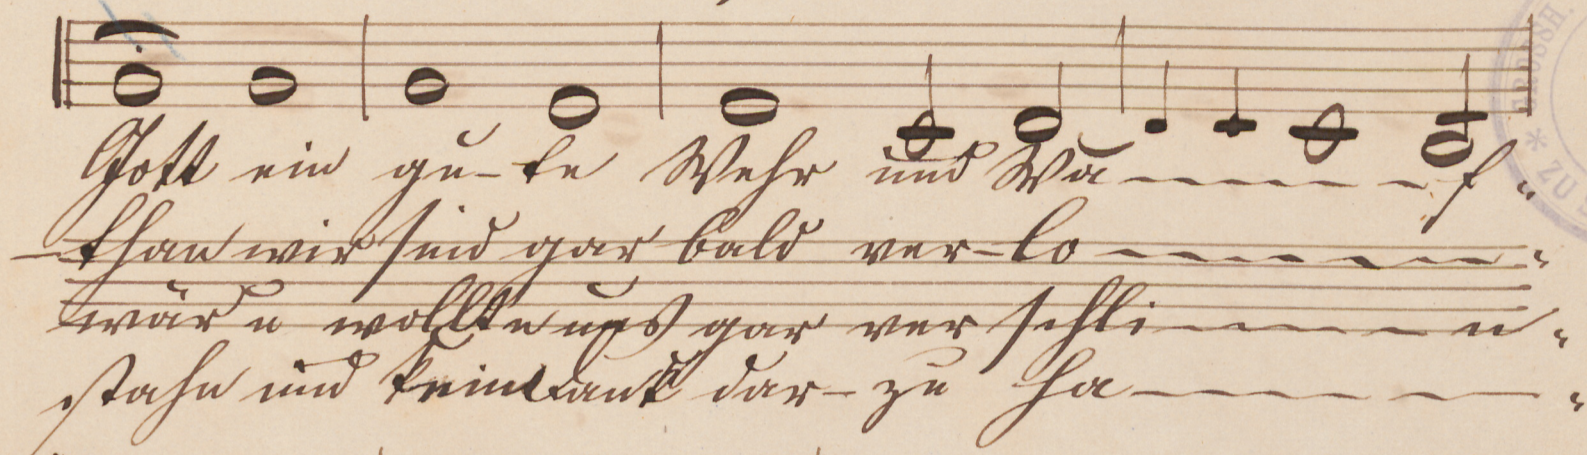 Gott ein gu-te Wehr und Wa-----f-
than wir sind gar bald ver-lo------
wär u wollte uns gar verschli----n-
stahn und kein Dank dar-zu ha------
GROSSH.
* ZU